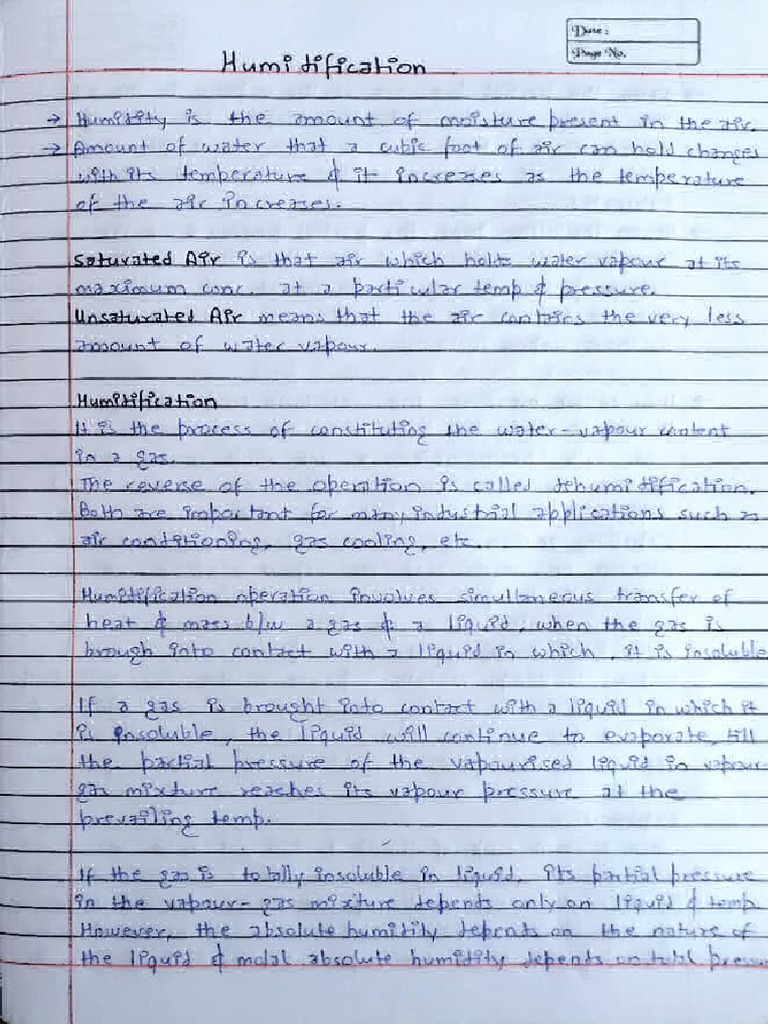 Date :
Page No.
Humidification
→ Humidity is the amount of moisture present in the air.
→ Amount of water that a cubic foot of air can hold changes
with its temperature & it increases as the temperature
of the air increases.
Saturated Air is that air which holds water vapour at its
maximum conc. at a particular temp & pressure.
Unsaturated Air means that the air contains the very less
amount of water vapour.
Humidification
It is the process of constituting the water-vapour content
in a gas.
The reverse of the operation is called dehumidification.
Both are important for many industrial applications such as
air conditioning, gas cooling, etc.
Humidification operation involves simultaneous transfer of
heat & mass b/w a gas & a liquid, when the gas is
brough into contact with a liquid in which, it is insoluble
If a gas is brought into contact with a liquid in which it
is insoluble, the liquid will continue to evaporate, till
the partial pressure of the vapourised liquid in vapour
gas mixture reaches its vapour pressure at the
prevailing temp.
If the gas is totally insoluble in liquid, its partial pressure
in the vapour-gas mixture depends only on liquid & temp
However, the absolute humidity depends on the nature of
the liquid & molal absolute humidity depends on total